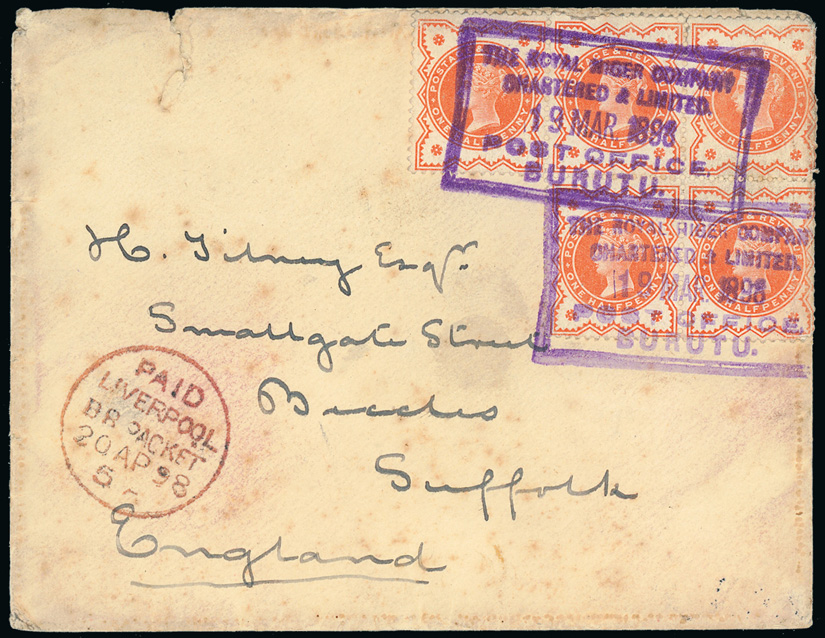 POSTAGE & REVENUE
ONE HALFPENNY
THE ROYAL NIGER COMPANY
CHARTERED & LIMITED.
19 MAR. 1898
POST OFFICE,
BURUTU.
POSTAGE & REVENUE
ONE HALFPENNY
THE ROYAL NIGER COMPANY
CHARTERED & LIMITED.
19 MAR. 1898
POST OFFICE,
BURUTU.
H. Tilney Esqr.
Smallgate Street
Beccles
Suffolk
England
PAID
LIVERPOOL
BR PACKET
20 AP 98
5